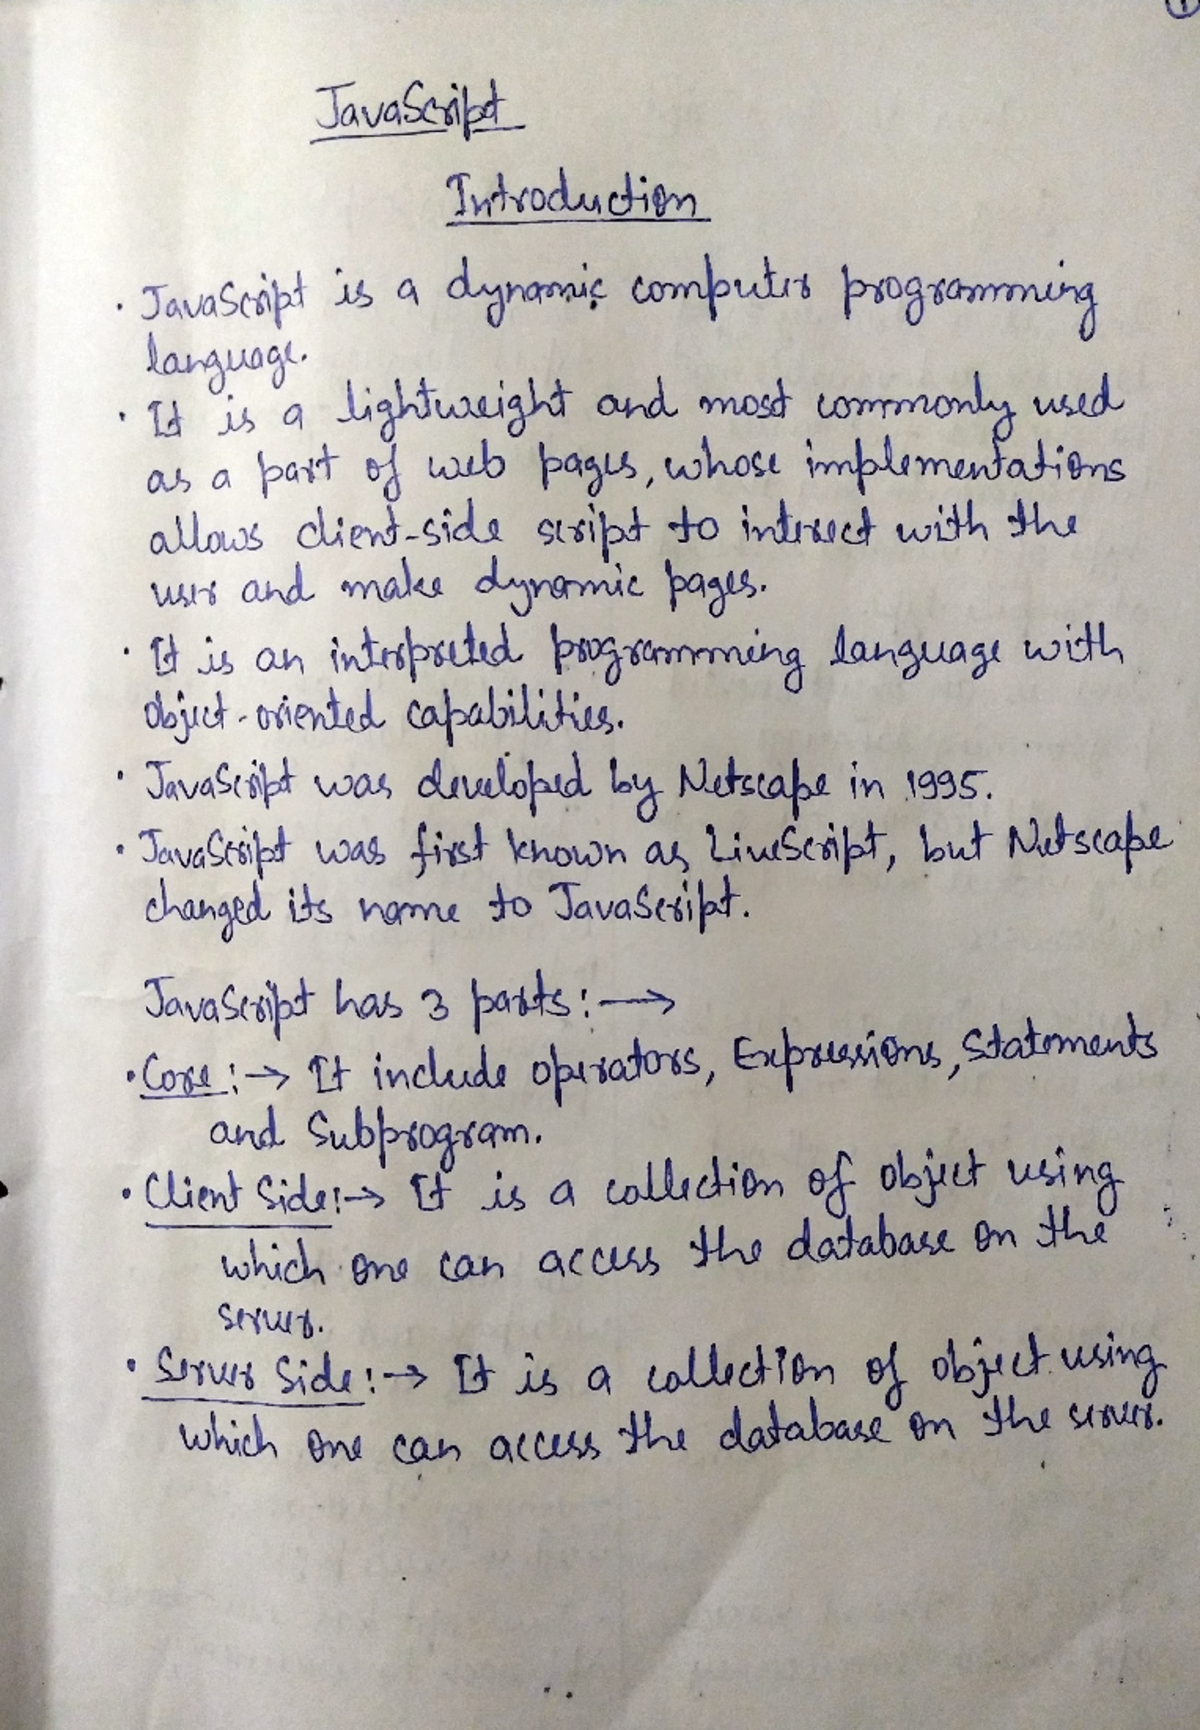 1
JavaScript
Introduction
• JavaScript is a dynamic computer programming
language.
• It is a lightweight and most commonly used
as a part of web pages, whose implementations
allows client-side script to interect with the
user and make dynamic pages.
• It is an interpreted programming language with
object-oriented capabilities.
• JavaScript was developed by Netscape in 1995.
• JavaScript was first known as LiveScript, but Netscape
changed its name to JavaScript.
JavaScript has 3 parts:→
• Core:→ It include operators, Expressions, Statements
and Subprogram.
• Client Side:→ It is a collection of object using
which one can access the database on the
server.
• Server Side:→ It is a collection of object using
which one can access the database on the server.